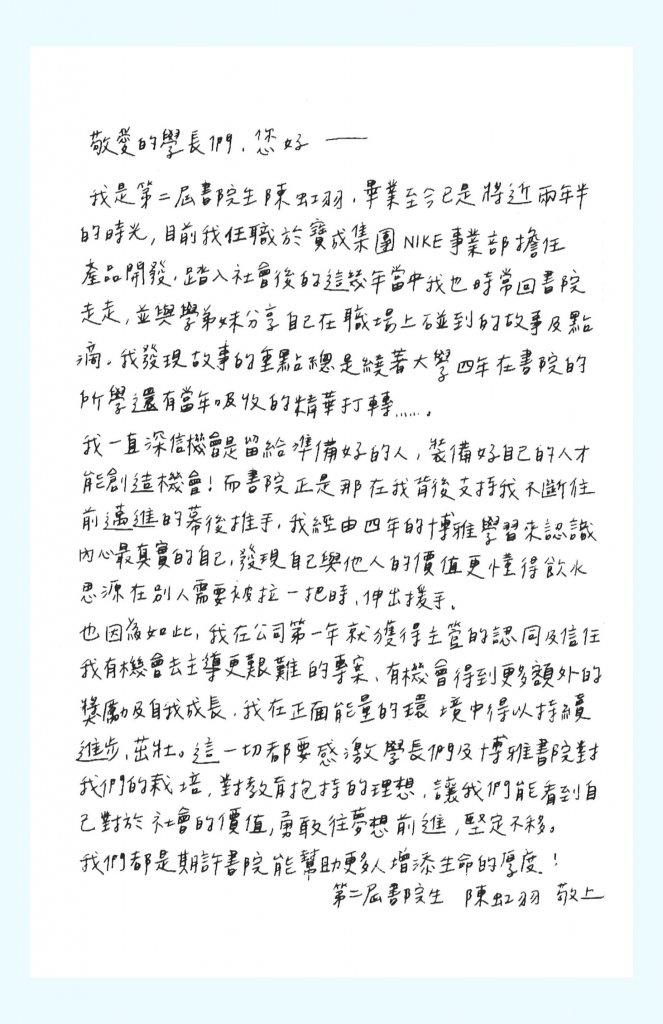 敬愛的學長們，您好 ——
我是第二屆書院生陳虹羽，畢業至今已是將近兩年半
的時光，目前我任職於寶成集團NIKE事業部擔任
產品開發，踏入社會後的這幾年當中我也時常回書院
走走，並與學弟妹分享自己在職場上碰到的故事及點
滴。我發現故事的重點總是繞著大學四年在書院的
所學還有當年吸收的精華打轉……。
我一直深信機會是留給準備好的人，裝備好自己的人才
能創造機會！而書院正是那在我背後支持我不斷往
前邁進的幕後推手，我經由四年的博雅學習來認識
內心最真實的自己，發現自己與他人的價值更懂得飲水
思源在別人需要被拉一把時，伸出援手。
也因為如此，我在公司第一年就獲得主管的認同及信任
我有機會去主導更艱難的專案、有機會得到更多額外的
獎勵及自我成長，我在正面能量的環境中得以持續
進步、茁壯。這一切都要感激學長們及博雅書院對
我們的栽培，對教育抱持的理想，讓我們能看到自
己對於社會的價值，勇敢往夢想前進，堅定不移。
我們都是期許書院能幫助更多人增添生命的厚度！
第二屆書院生 陳虹羽 敬上